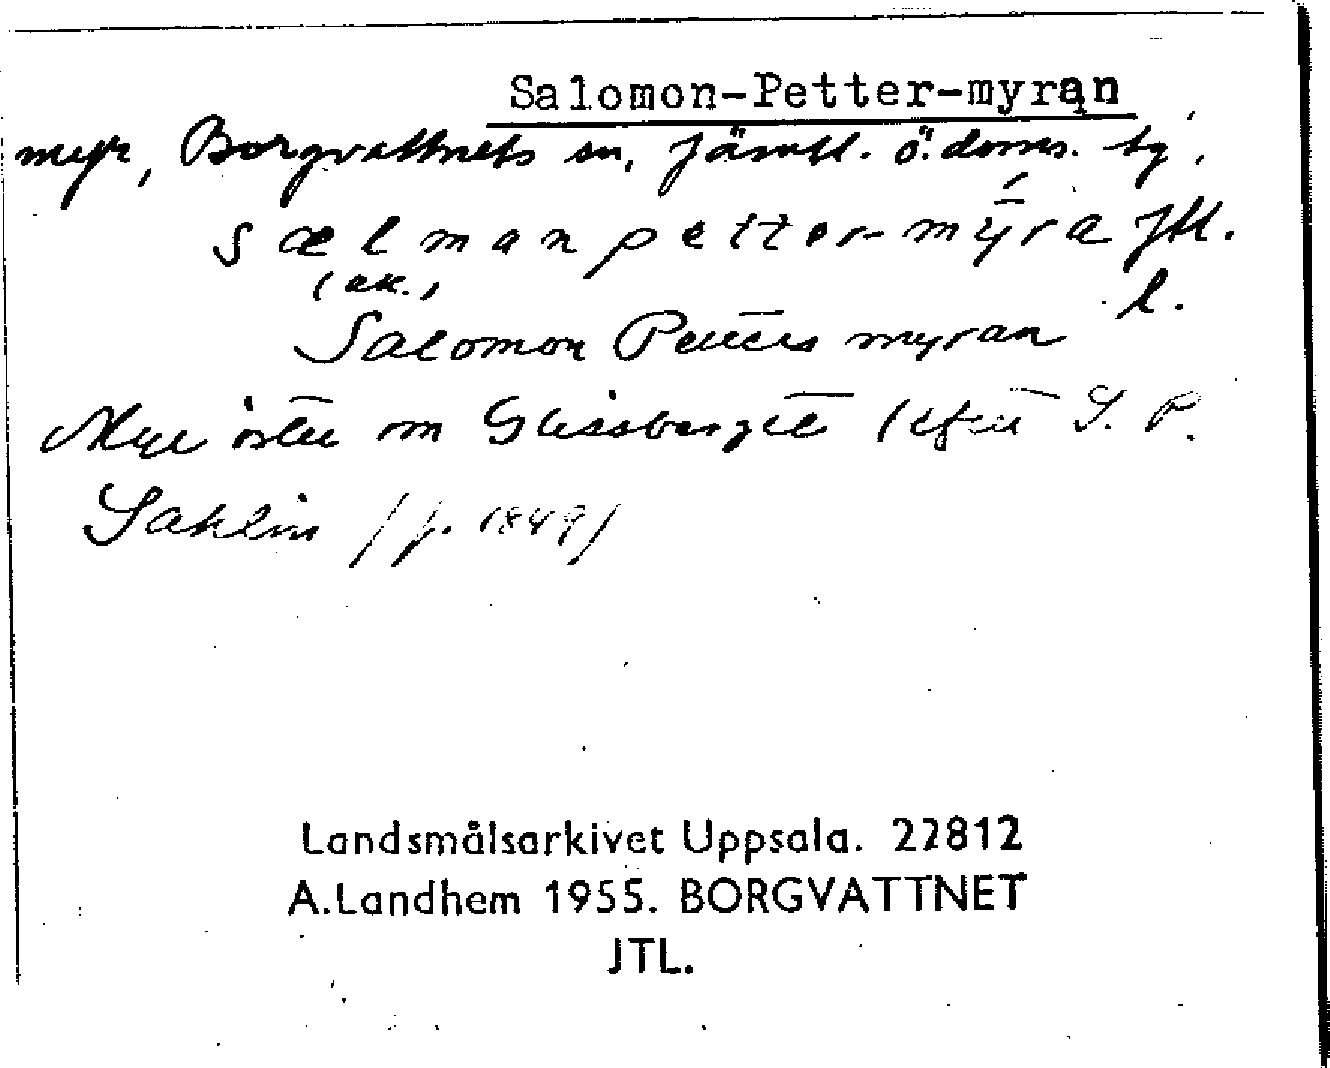 Salomon-Petter-myran
myr, Borgvattnets sn, Jämtl. ö. doms. tg.
sælmanpetter-mýra Jtl.
(ak.) l.
Salomon Petters myran
Myr öster om Glissberget (efter S. P.
Sahlin / f. 1849/
Landsmålsarkivet Uppsala. 22812
A.Landhem 1955. BORGVATTNET
JTL.